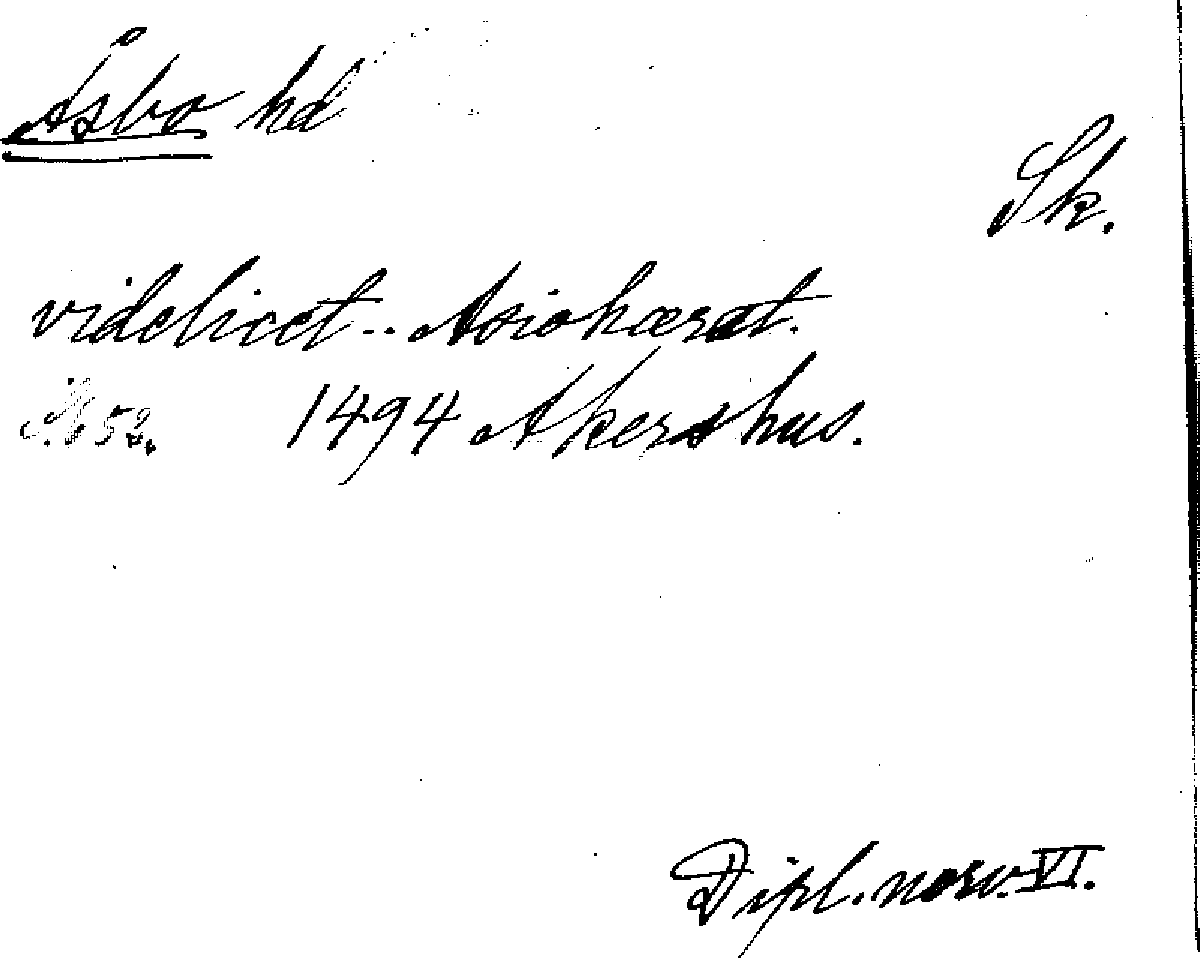 Åsbo hd
Sk.
videlicet.. Asiohæret.
1494 Akershus.
Dipl. norv. VI.